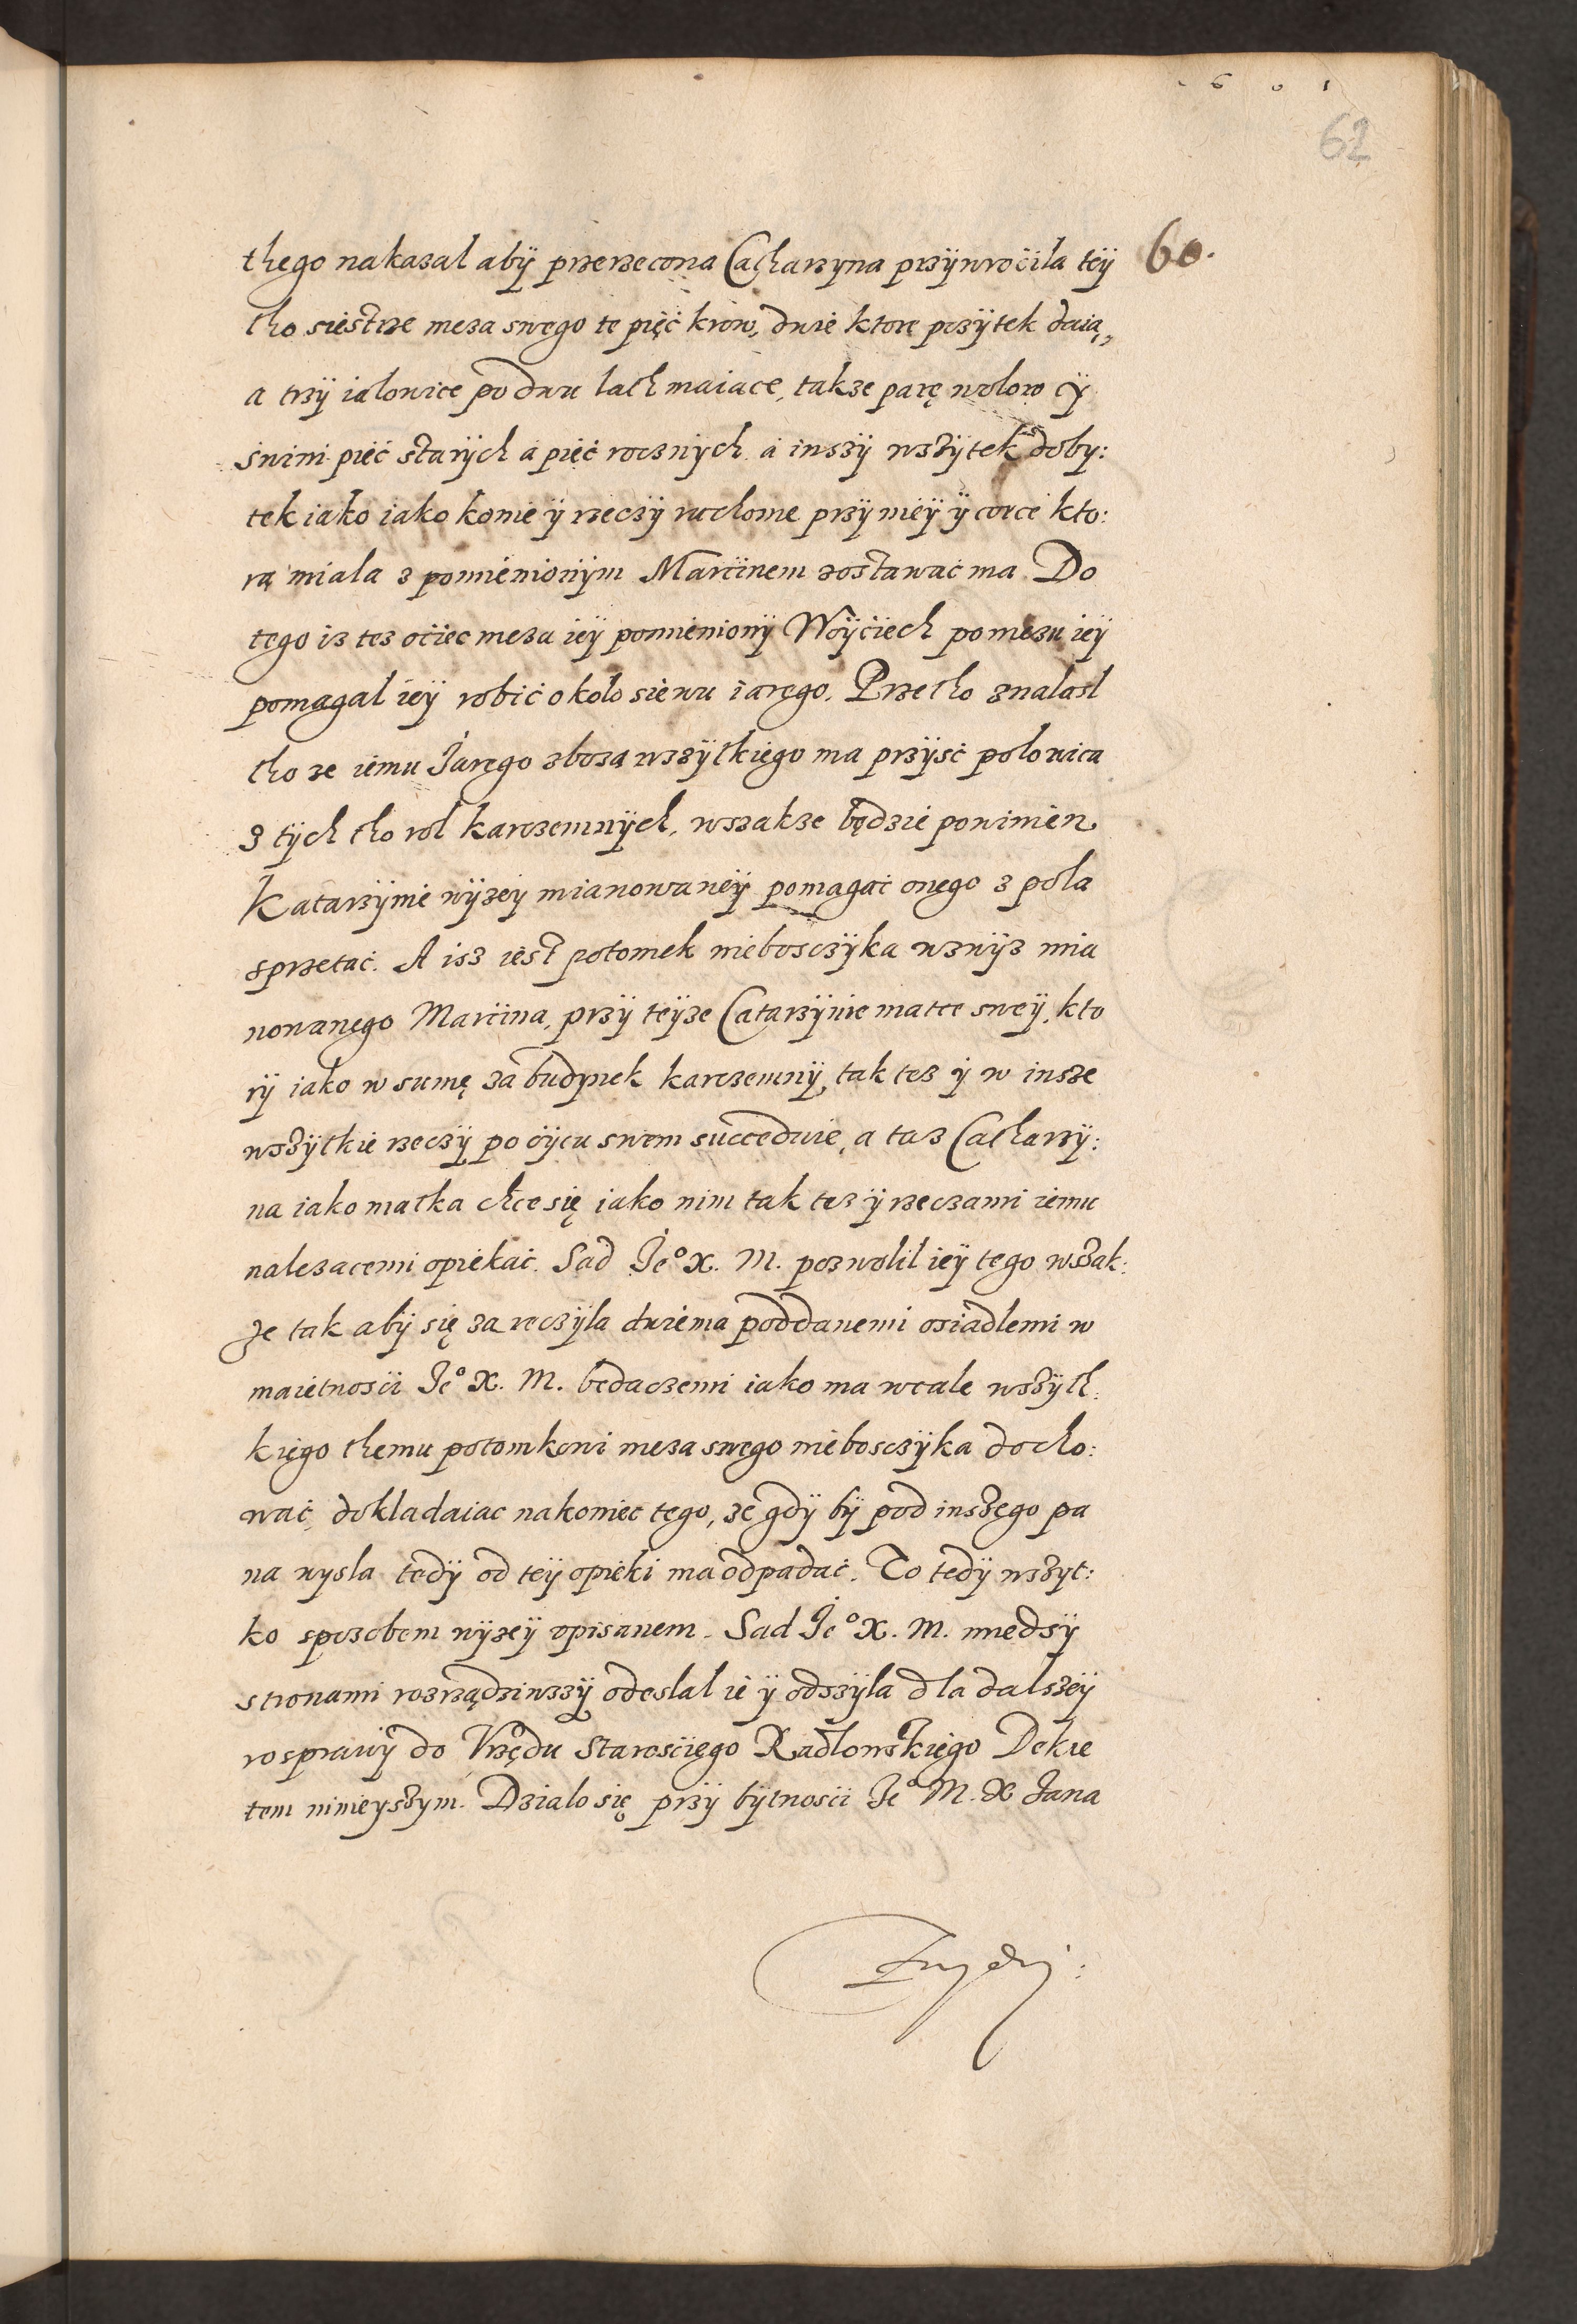 6 0 1
62
60.
thego nakazal abÿ przerzecona Catharzyna przÿwrocila teÿ
tho siestrze męza swego te pięć krow, dwie ktore pozÿtek daią,
a trzÿ ialowice po dwu lath maiace, takze parę wolow ÿ
swini pięć starÿch a pięć rocznÿch a inszÿ wszÿtek doby:
tek iako iako konie ÿ rzeczÿ ruchome przÿ nieÿ ÿ corce kto:
rą miala z pomienionÿm Marcinem zostawać ma. Do
tego iz tez ociec męza ieÿ pomienionÿ Woÿciech po męzu ieÿ
pomagal ieÿ robić okolo siewu iarego. Przetho znalazl
tho ze iemu Jarego zboza wszÿtkiego ma przÿsć polowica
z tÿch tho rol karczemnÿch, wszakze będzie powinien
Katarzÿnie wÿzeÿ mianowaneÿ pomagać onego z pola
sprzetać. A isz iest potomek nieboszczÿka wzwÿz mia
nowanego Marcina, przÿ teÿze Catarzÿnie matce sweÿ, kto
rÿ iako w sumę za budÿnek karczemnÿ, tak tez ÿ w insze
wszÿtkie rzeczÿ po oÿcu swem succeduie, a taz Catharzÿ:
na iako matka chce się iako nim tak tez ÿ rzeczami iemu
nalezacemi opiekać. Sad Je° X. M. pozwolil ieÿ tego wszak:
ze tak abÿ się zaręczÿla dwiema poddanemi osiadlemi w
maietnosci Je° X. M. bedaczemi iako ma wcale wszÿth:
kiego themu potomkowi męza swego niebosczÿka docho:
wać, dokladaiac nakoniec tego, ze gdÿ bÿ pod inszego pa
na wysla tedÿ od teÿ opieki ma odpadać. To tedÿ wszyt:
ko sposobem wÿzeÿ opisanem. Sad Je° X. M. miedzÿ
stronami rozrządziwszÿ odeslal ie ÿ odszÿla dla dalszeÿ
rosprawÿ do Vrzędu Starosciego Radlowskiego Dekre
tem ninieyszym. Dzialo się przÿ bÿtnosci Je° M. X Jana